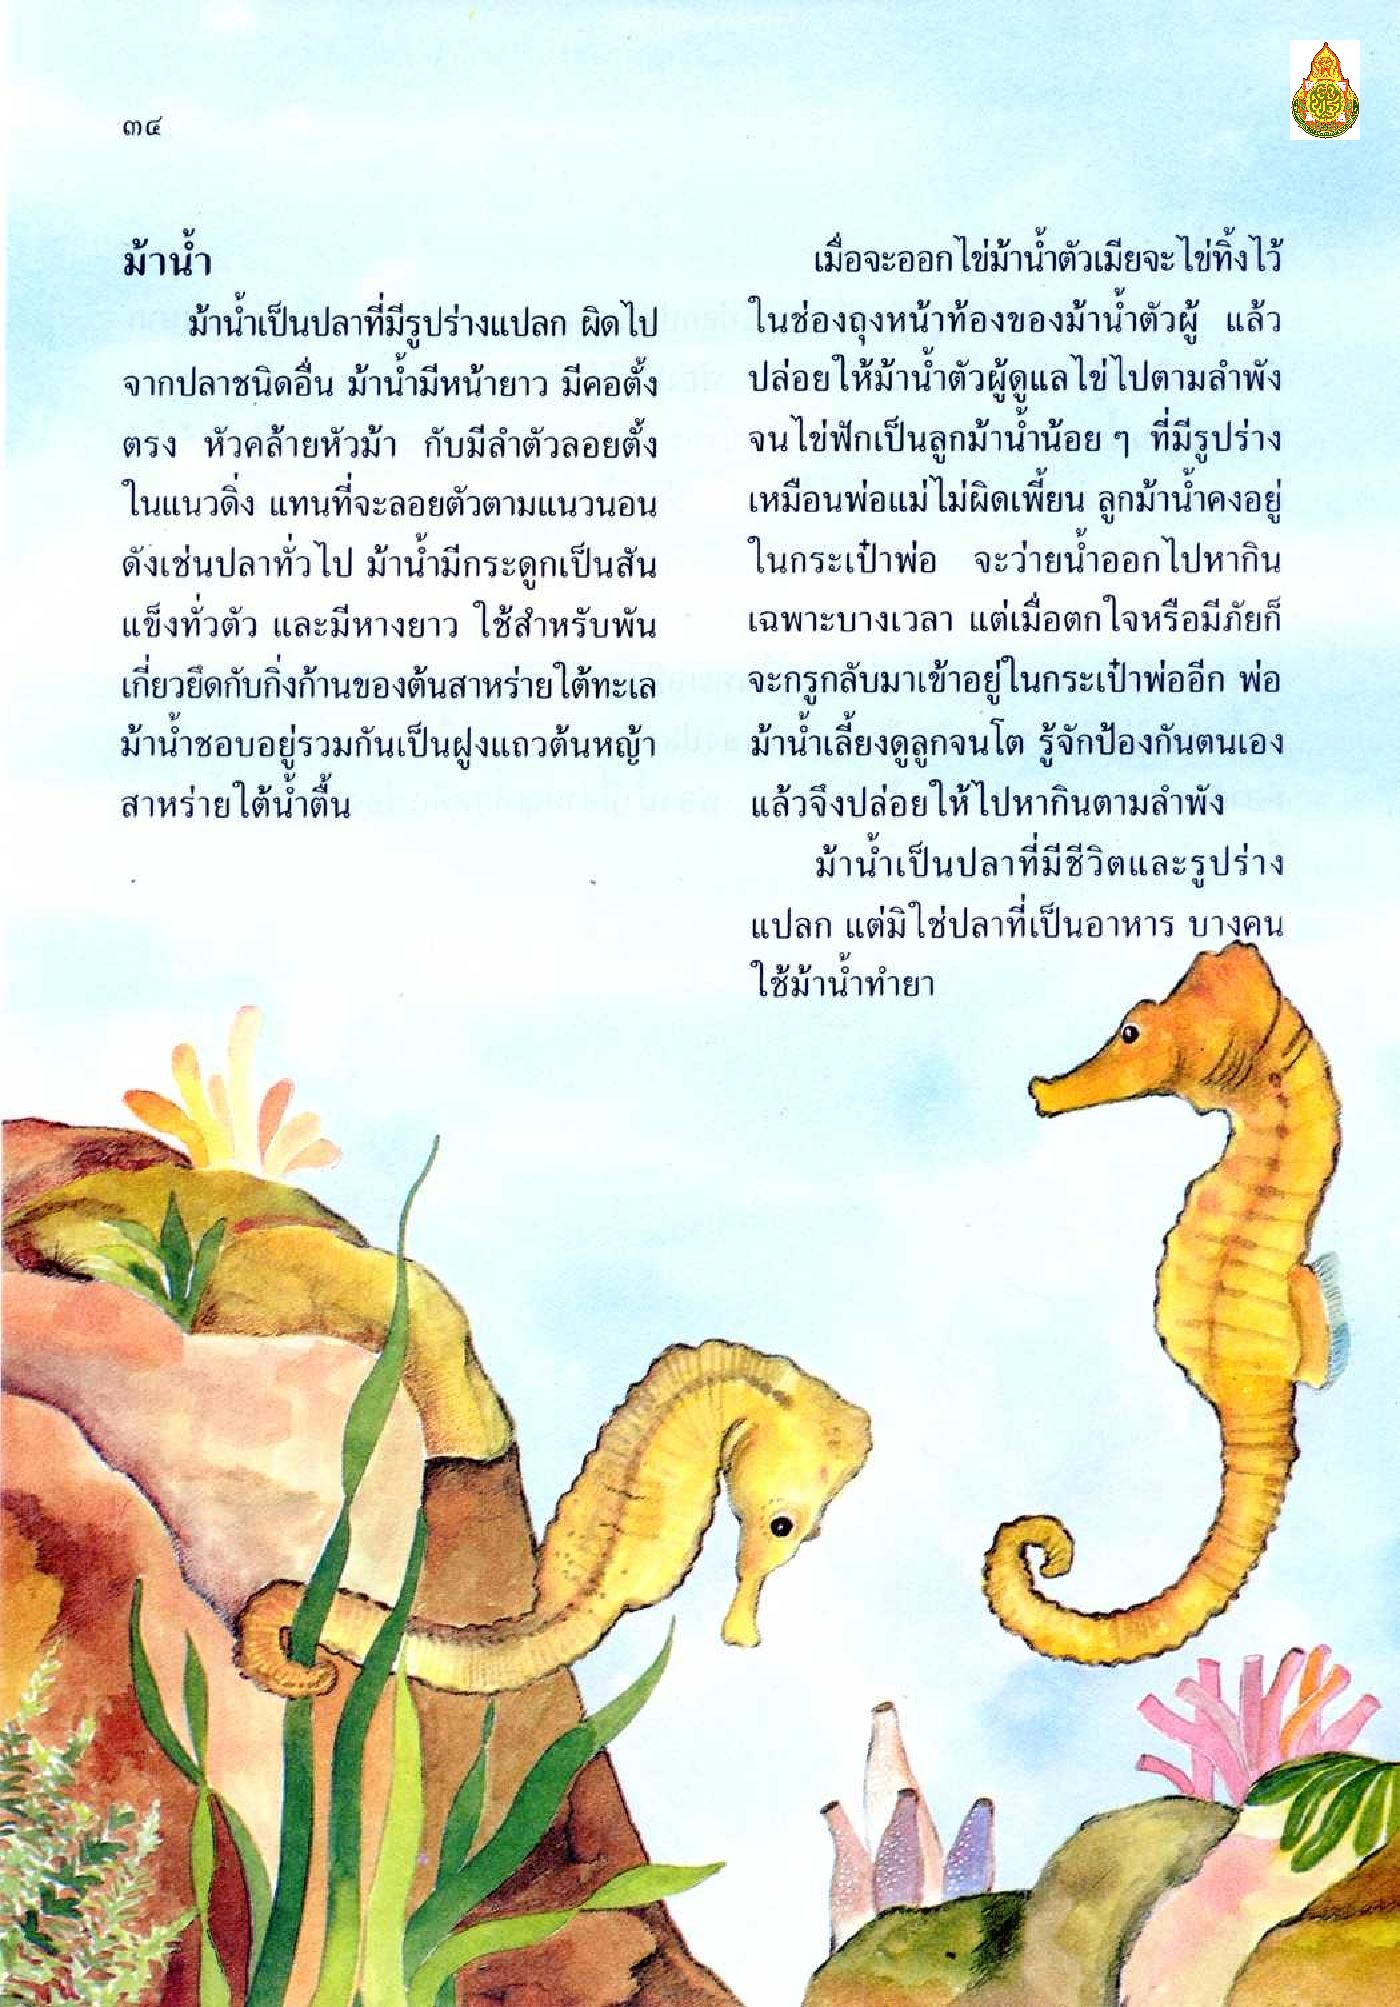 ๓๔
ม้าน้ำ
ม้าน้ำเป็นปลาที่มีรูปร่างแปลก ผิดไป
จากปลาชนิดอื่น ม้าน้ำมีหน้ายาว มีคอตั้ง
ตรง หัวคล้ายหัวม้า กับมีลำตัวลอยตั้ง
ในแนวดิ่ง แทนที่จะลอยตัวตามแนวนอน
ดังเช่นปลาทั่วไป ม้าน้ำมีกระดูกเป็นสัน
แข็งทั่วตัว และมีหางยาว ใช้สำหรับพัน
เกี่ยวยึดกับกิ่งก้านของต้นสาหร่ายใต้ทะเล
ม้าน้ำชอบอยู่รวมกันเป็นฝูงแถวต้นหญ้า
สาหร่ายใต้น้ำตื้น
เมื่อจะออกไข่ม้าน้ำตัวเมียจะไข่ทิ้งไว้
ในช่องถุงหน้าท้องของม้าน้ำตัวผู้ แล้ว
ปล่อยให้ม้าน้ำตัวผู้ดูแลไข่ไปตามลำพัง
จนไข่ฟักเป็นลูกม้าน้ำน้อย ๆ ที่มีรูปร่าง
เหมือนพ่อแม่ไม่ผิดเพี้ยน ลูกม้าน้ำคงอยู่
ในกระเป๋าพ่อ จะว่ายน้ำออกไปหากิน
เฉพาะบางเวลา แต่เมื่อตกใจหรือมีภัยก็
จะกรูกลับมาเข้าอยู่ในกระเป๋าพ่ออีก พ่อ
ม้าน้ำเลี้ยงดูลูกจนโต รู้จักป้องกันตนเอง
แล้วจึงปล่อยให้ไปหากินตามลำพัง
ม้าน้ำเป็นปลาที่มีชีวิตและรูปร่าง
แปลก แต่มิใช่ปลาที่เป็นอาหาร บางคน
ใช้ม้าน้ำทำยา